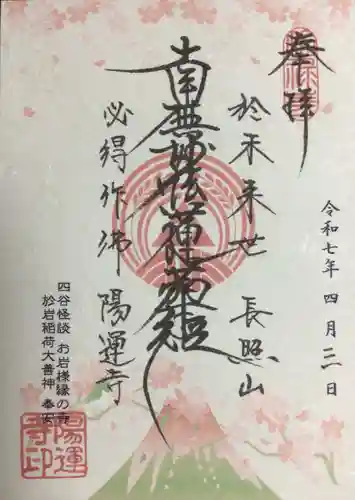 奉拝
令和七年 四月 三日
於未来世 長照山
南無妙法蓮華経
必得作佛 陽運寺
四谷怪談 お岩様縁の寺
於岩稲荷大善神 奉安
陽運
寺印